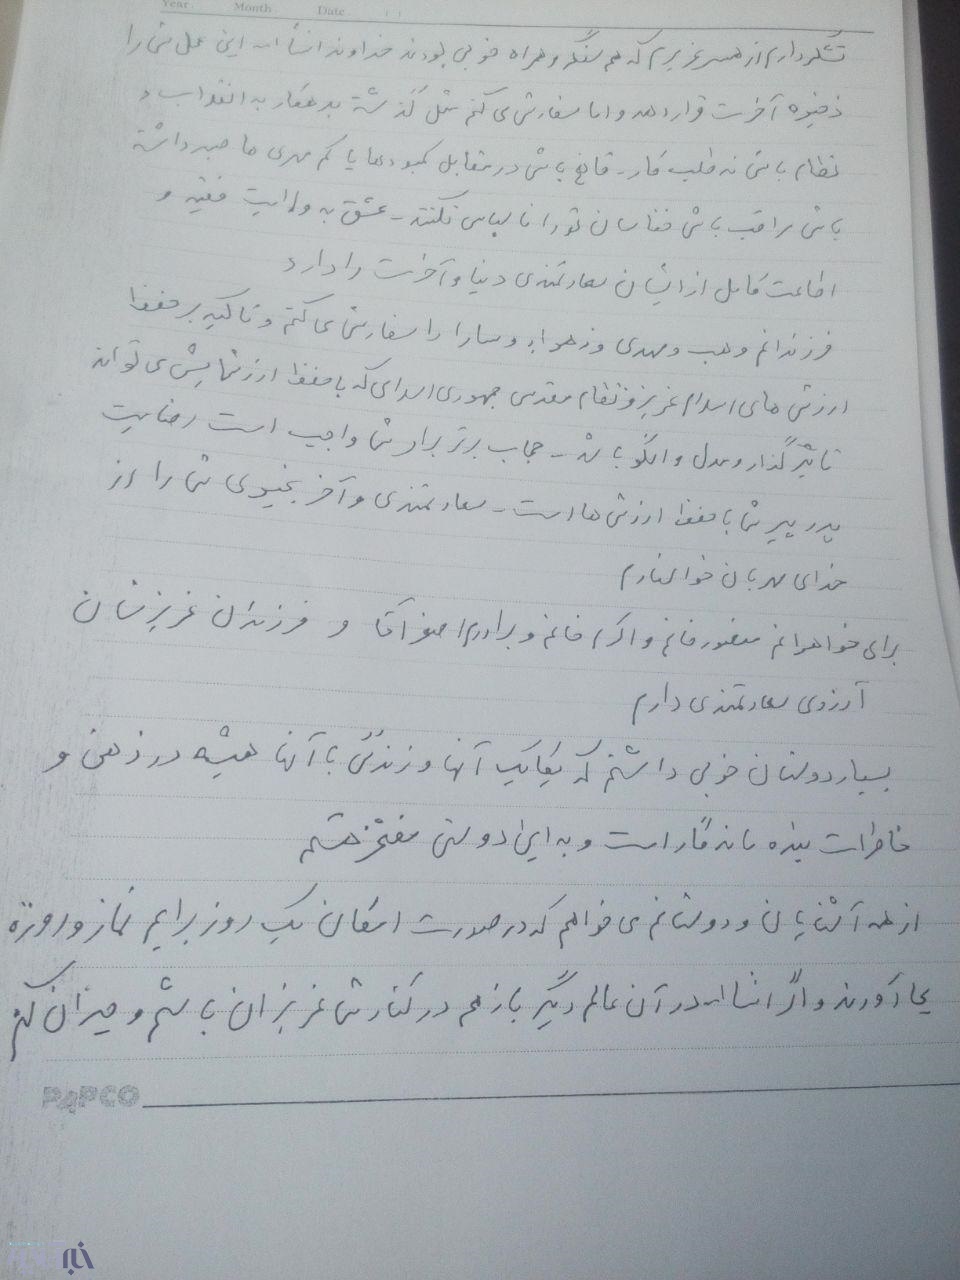 Year. Month. Date. / /
تشکر دارم از همسر عزیزم که هم سنگر و همراه خوبی بودند خداوند انشااله این عمل شما را
ذخیره آخرت قرار دهد و اما سفارش می کنم مثل گذشته بدهکار به انقلاب و
نظام باش نه طلب کار - قانع باش در مقابل کمبودها یا کم مهری ها صبر داشته
باش مراقب باش خناسان تو را نا سپاس نکنند - عشق به ولایت فقیه و
اطاعت کامل از ایشان سعادتمندی دنیا و آخرت را دارد
فرزندانم وهب و مهدی و زهرا و سارا را سفارش می کنم و تاکید بر حفظ
ارزش های اسلام عزیز و نظام مقدس جمهوری اسلامی که با حفظ ارزشهایش می تواند
تاثیر گذار و مدل و الگو باشد - حجاب برتر برای شما واجب است رضایت
پدر پیر شما با حفظ ارزش ها است - سعادتمندی و آخر بخیری شما را از
خدای مهربان خواستارم
برای خواهرانم منصوره خانم و اکرم خانم و برادرم اصغر آقا و فرزندان عزیزشان
آرزوی سعادتمندی دارم
بسیار دوستان خوبی داشتم که یکایک آنها و زندگی با آنها همیشه در ذهن و
خاطرات بنده ماندگار است و به این دوستی مفتخر هستم
از همه آشنایان و دوستانم می خواهم که در صورت امکان یک روز برایم نماز و روزه
بجا آورند و اگر انشااله در آن عالم دیگر باز هم در کنار شما عزیزان باشم و جبران کنم
PAPCO